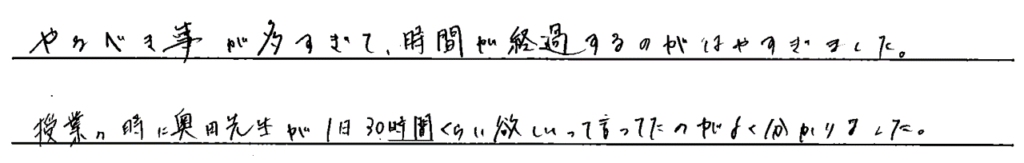 やるべき事が多すぎて、時間が経過するのがはやすぎました。
授業の時に奥田先生が1日30時間くらい欲しいって言ってたのがよく分かりました。